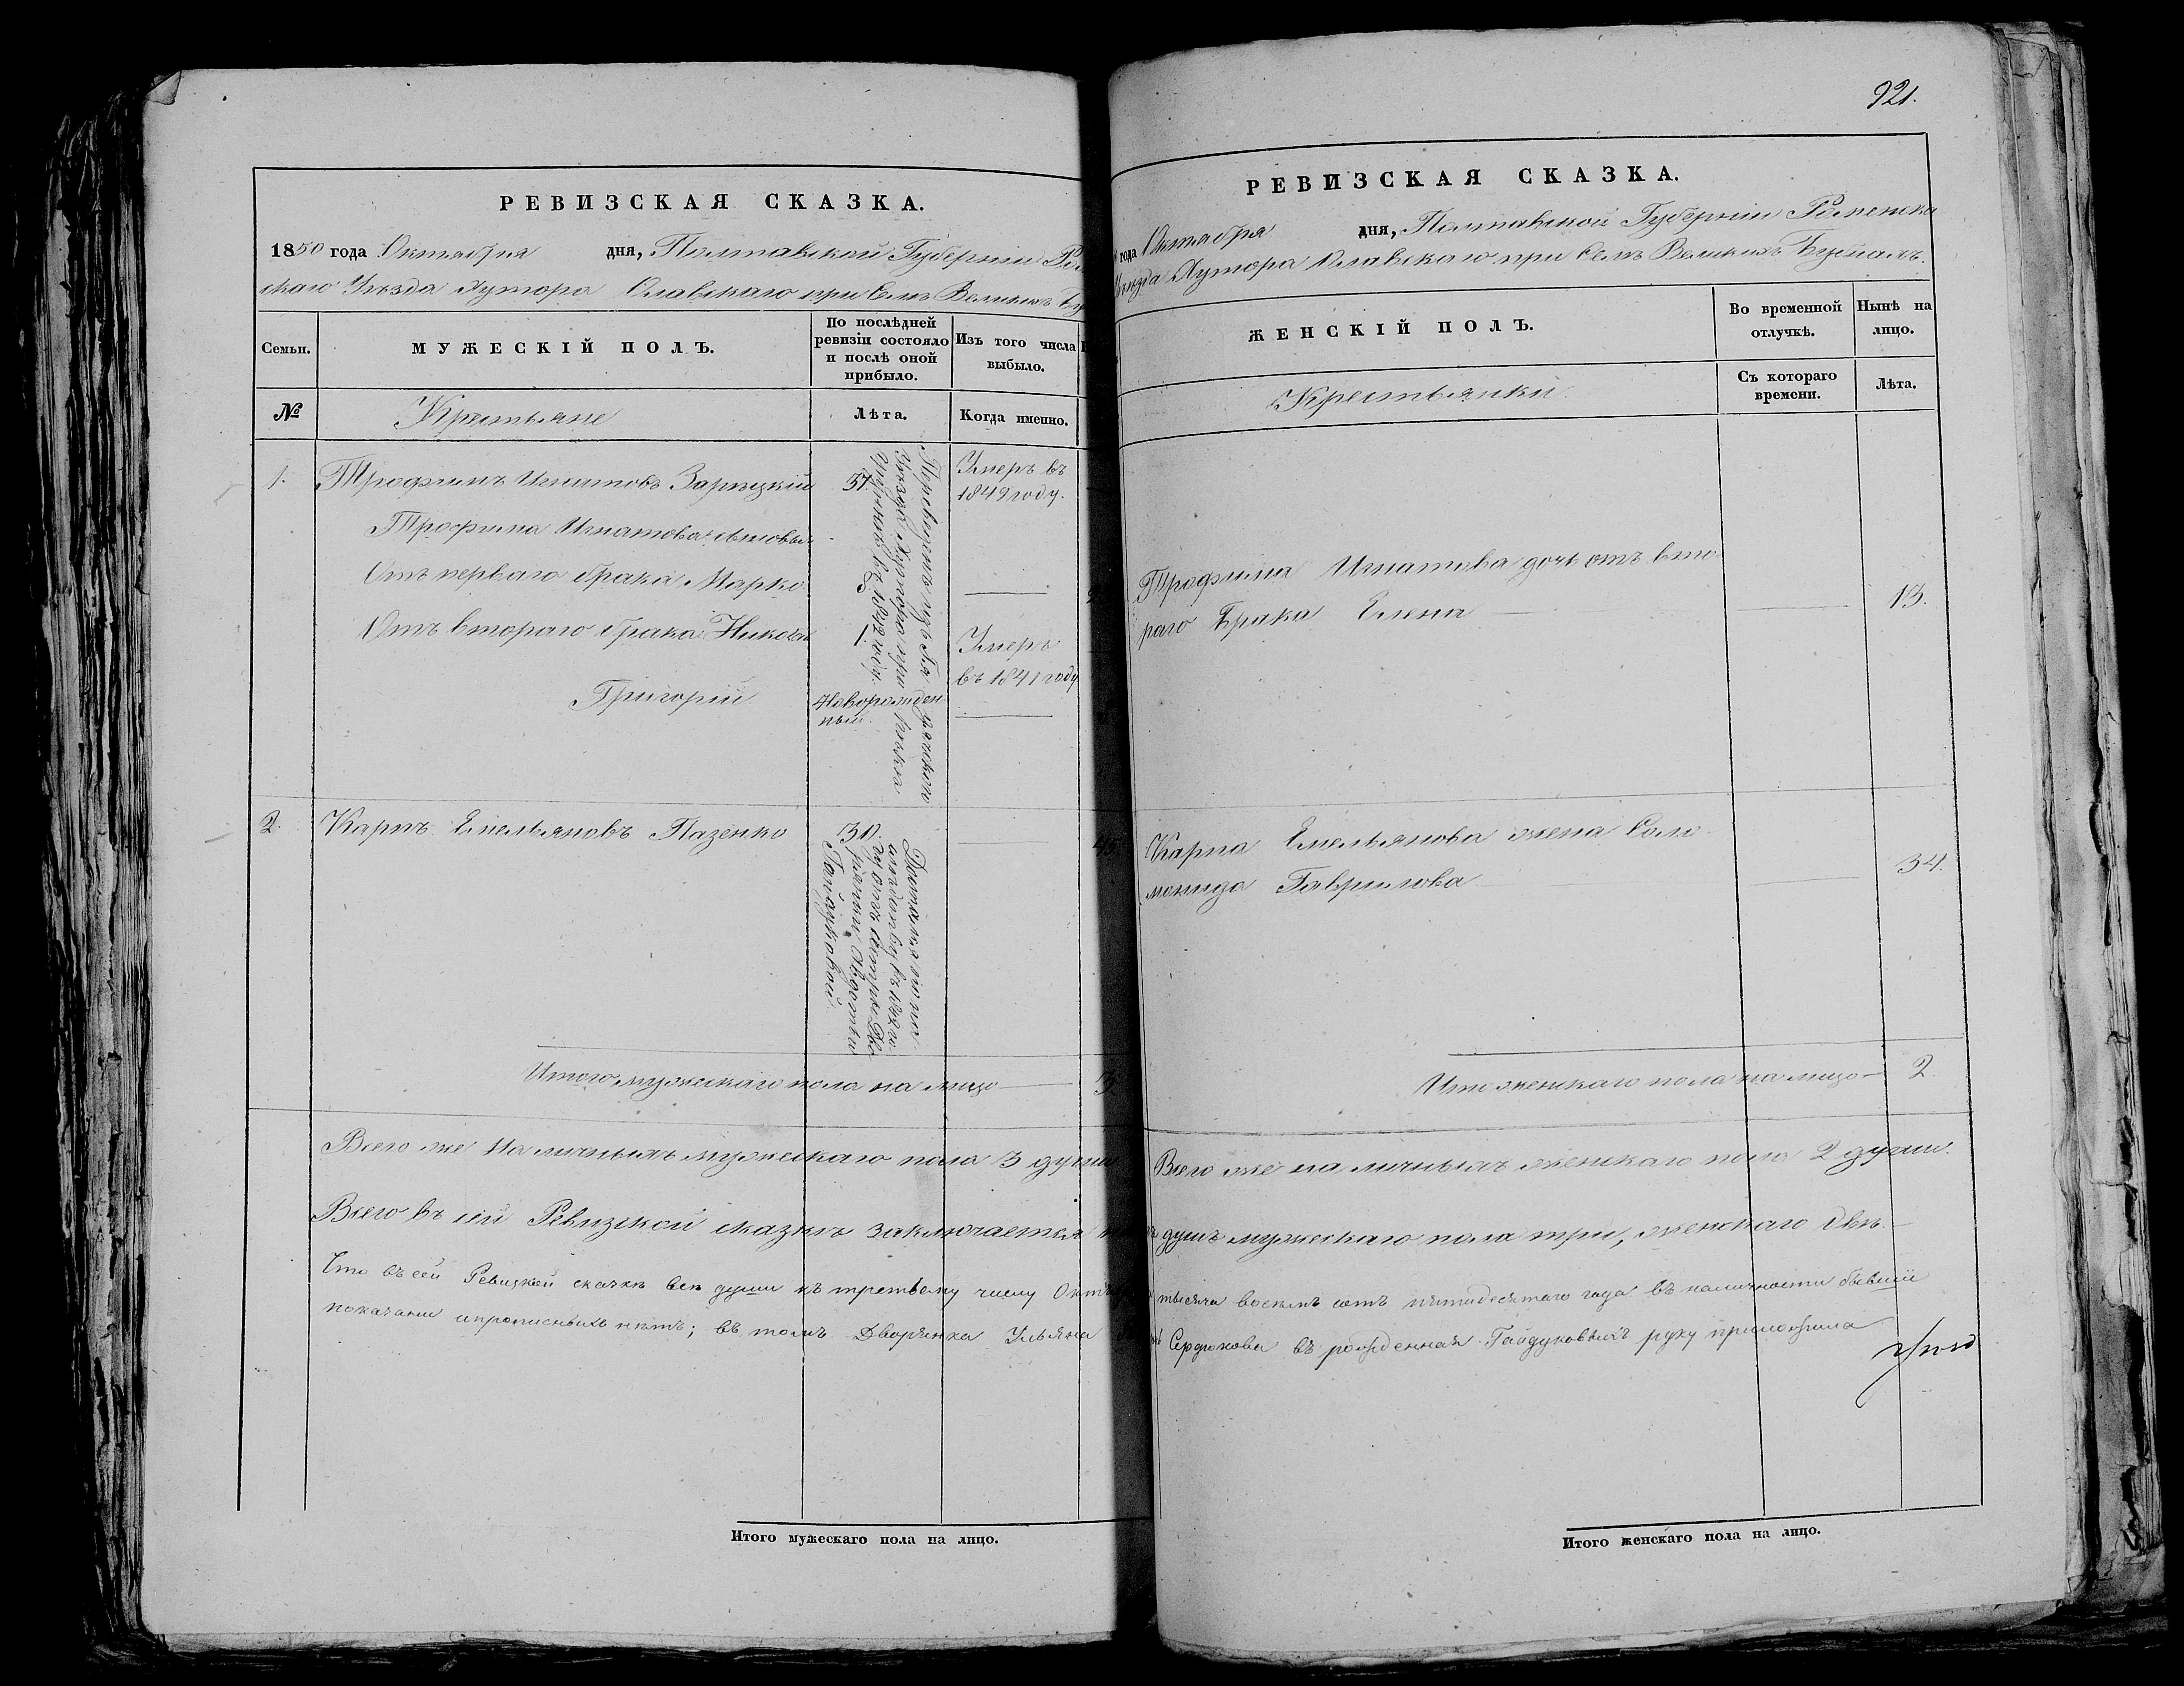 921.
РЕВИЗСКАЯ СКАЗКА.
1850 года Октября дня, Полтавской Губерніи Ро
скаго Уѣзда Хутора Славскаго при Селѣ Великихъ Бу
Семьи.
МУЖЕСКІЙ ПОЛЪ.
По послѣдней ревизіи состояло и послѣ оной прибыло.
Изъ того числа выбыло.
№
Крестьяне
Лѣта.
Когда именно.
1.
Трофимъ Игнатовъ Зарецкій
57.
Умеръ въ
1849 году.
Трофима Игматова сыновья
Отъ перваго брака Марко
Отъ втораго брака
1.
Умеръ
въ 1841 году
Григорій
Новорожден
ный.
Переведенъ изъ
Уѣзда Хутора при
въ 1842 году.
2.
Карпъ Емельяновъ Пазенко
30.
Достался по
въ
сестре
Авдотьи
Гайдуковой.
Итого мужескаго пола на лицо
3.
Всего же на личныхъ мужескаго пола 3 души
Всего въ сей Ревизской сказкѣ заключается
Что въ сей Ревизской сказкѣ всѣ души къ третьему числу Окт
показаны и прописныхъ нѣтъ; въ томъ Дворянка Ульяна
Итого мужескаго пола на лицо.
РЕВИЗСКАЯ СКАЗКА.
года Октября дня, Полтавской Губерніи Роменска
Уѣзда Хутора Славскаго при Селѣ Великихъ Бубнахъ.
ЖЕНСКІЙ ПОЛЪ.
Во временной отлучкѣ.
Нынѣ на лицо.
Крестьянки
Съ котораго времени.
Лѣта.
Трофима Игнатова дочь отъ вто
раго брака Елена
13.
Карпа Емельянова жена Соло
монида Гаврилова
34.
Итого женскаго пола на лицо
2.
Всего же на личныхъ женскаго пола 2 души.
душъ мужескаго пола три, женскаго двѣ.
тысяча восемь сотъ пятидесятого года въ наличности бывшіи
Сердюкова въ рожденная Гайдуковыхъ руку приложила
Итого женскаго пола на лицо.